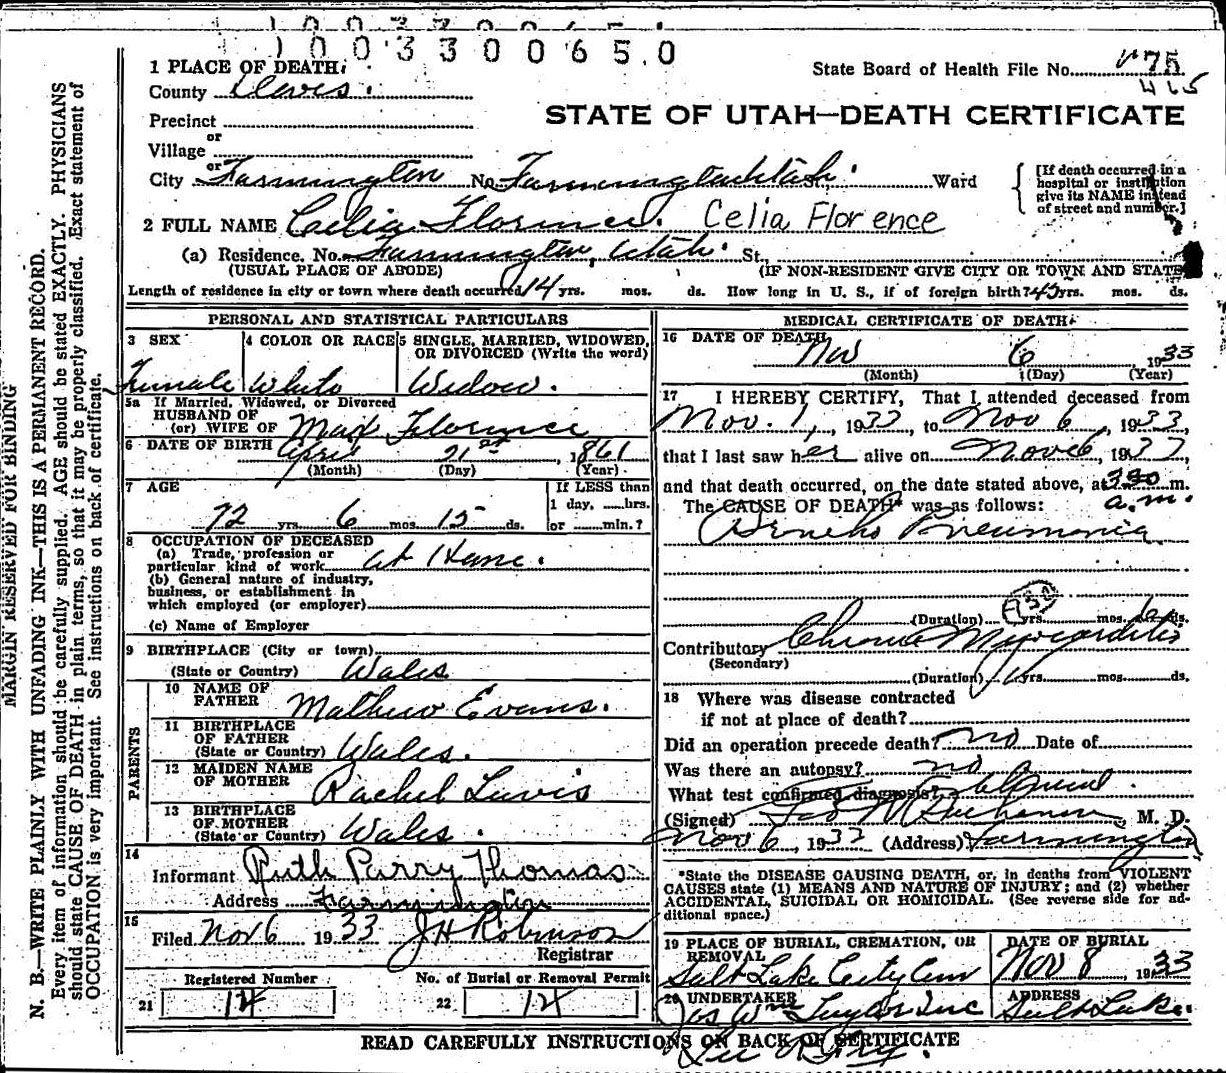 1003300650
1 PLACE OF DEATH:
State Board of Health File No. 75
465
County Davis.
STATE OF UTAH—DEATH CERTIFICATE
Precinct
or
Village
or
City Farmington No. Farmington Utah. St. Ward
[If death occurred in a hospital or institution give its NAME instead of street and number.]
2 FULL NAME Celia Florence. Celia Florence
(a) Residence. No. Farmington, Utah. St.
(USUAL PLACE OF ABODE) (IF NON-RESIDENT GIVE CITY OR TOWN AND STATE
Length of residence in city or town where death occurred 14 yrs. mos. ds. How long in U. S., if of foreign birth? 45 yrs. mos. ds.
PERSONAL AND STATISTICAL PARTICULARS
3 SEX 4 COLOR OR RACE 5 SINGLE, MARRIED, WIDOWED, OR DIVORCED (Write the word)
Female White Widow.
5a If Married, Widowed, or Divorced
HUSBAND OF
(or) WIFE OF Max Florence
6 DATE OF BIRTH April 21st, 1861
(Month) (Day) (Year)
7 AGE If LESS than
1 day, hrs.
72 yrs. 6 mos. 15 ds. or min.?
8 OCCUPATION OF DECEASED
(a) Trade, profession or
particular kind of work at Home.
(b) General nature of industry,
business, or establishment in
which employed (or employer)
(c) Name of Employer
9 BIRTHPLACE (City or town)
(State or Country) Wales
PARENTS
10 NAME OF
FATHER Mathew Evans.
11 BIRTHPLACE
OF FATHER
(State or Country) Wales.
12 MAIDEN NAME
OF MOTHER Rachel Lewis
13 BIRTHPLACE
OF MOTHER
(State or Country) Wales.
14
Informant Ruth Parry Thomas
Address Farmington
15
Filed Nov 6 1933 J H Robinson
Registrar
Registered Number No. of Burial or Removal Permit
21 14 22 14
MEDICAL CERTIFICATE OF DEATH
16 DATE OF DEATH
Nov 6 1933
(Month) (Day) (Year)
17 I HEREBY CERTIFY, That I attended deceased from
Nov. 1, 1933, to Nov 6, 1933,
that I last saw her alive on Nov 6, 1933,
and that death occurred, on the date stated above, at 330 m.
a.m.
The CAUSE OF DEATH* was as follows:
Broncho Pneumonia
(Duration) yrs. mos. 6 ds.
Contributory Chronic Myocarditis
(Secondary)
(Duration) yrs. mos. ds.
18 Where was disease contracted
if not at place of death?
Did an operation precede death? no Date of
Was there an autopsy? no
What test confirmed diagnosis?
(Signed) M. D.
Nov 6, 1933 (Address) Farmington
*State the DISEASE CAUSING DEATH, or, in deaths from VIOLENT
CAUSES state (1) MEANS AND NATURE OF INJURY; and (2) whether
ACCIDENTAL, SUICIDAL OR HOMICIDAL. (See reverse side for ad-
ditional space.)
19 PLACE OF BURIAL, CREMATION, OR
REMOVAL
Salt Lake City Cem
DATE OF BURIAL
Nov 8, 1933
20 UNDERTAKER
Jos Wm Taylor Inc
ADDRESS
Salt Lake.
READ CAREFULLY INSTRUCTIONS ON BACK OF CERTIFICATE
MARGIN RESERVED FOR BINDING
N. B.—WRITE PLAINLY WITH UNFADING INK—THIS IS A PERMANENT RECORD.
Every item of information should be carefully supplied. AGE should be stated EXACTLY. PHYSICIANS
should state CAUSE OF DEATH in plain terms, so that it may be properly classified. Exact statement of
OCCUPATION is very important. See instructions on back of certificate.